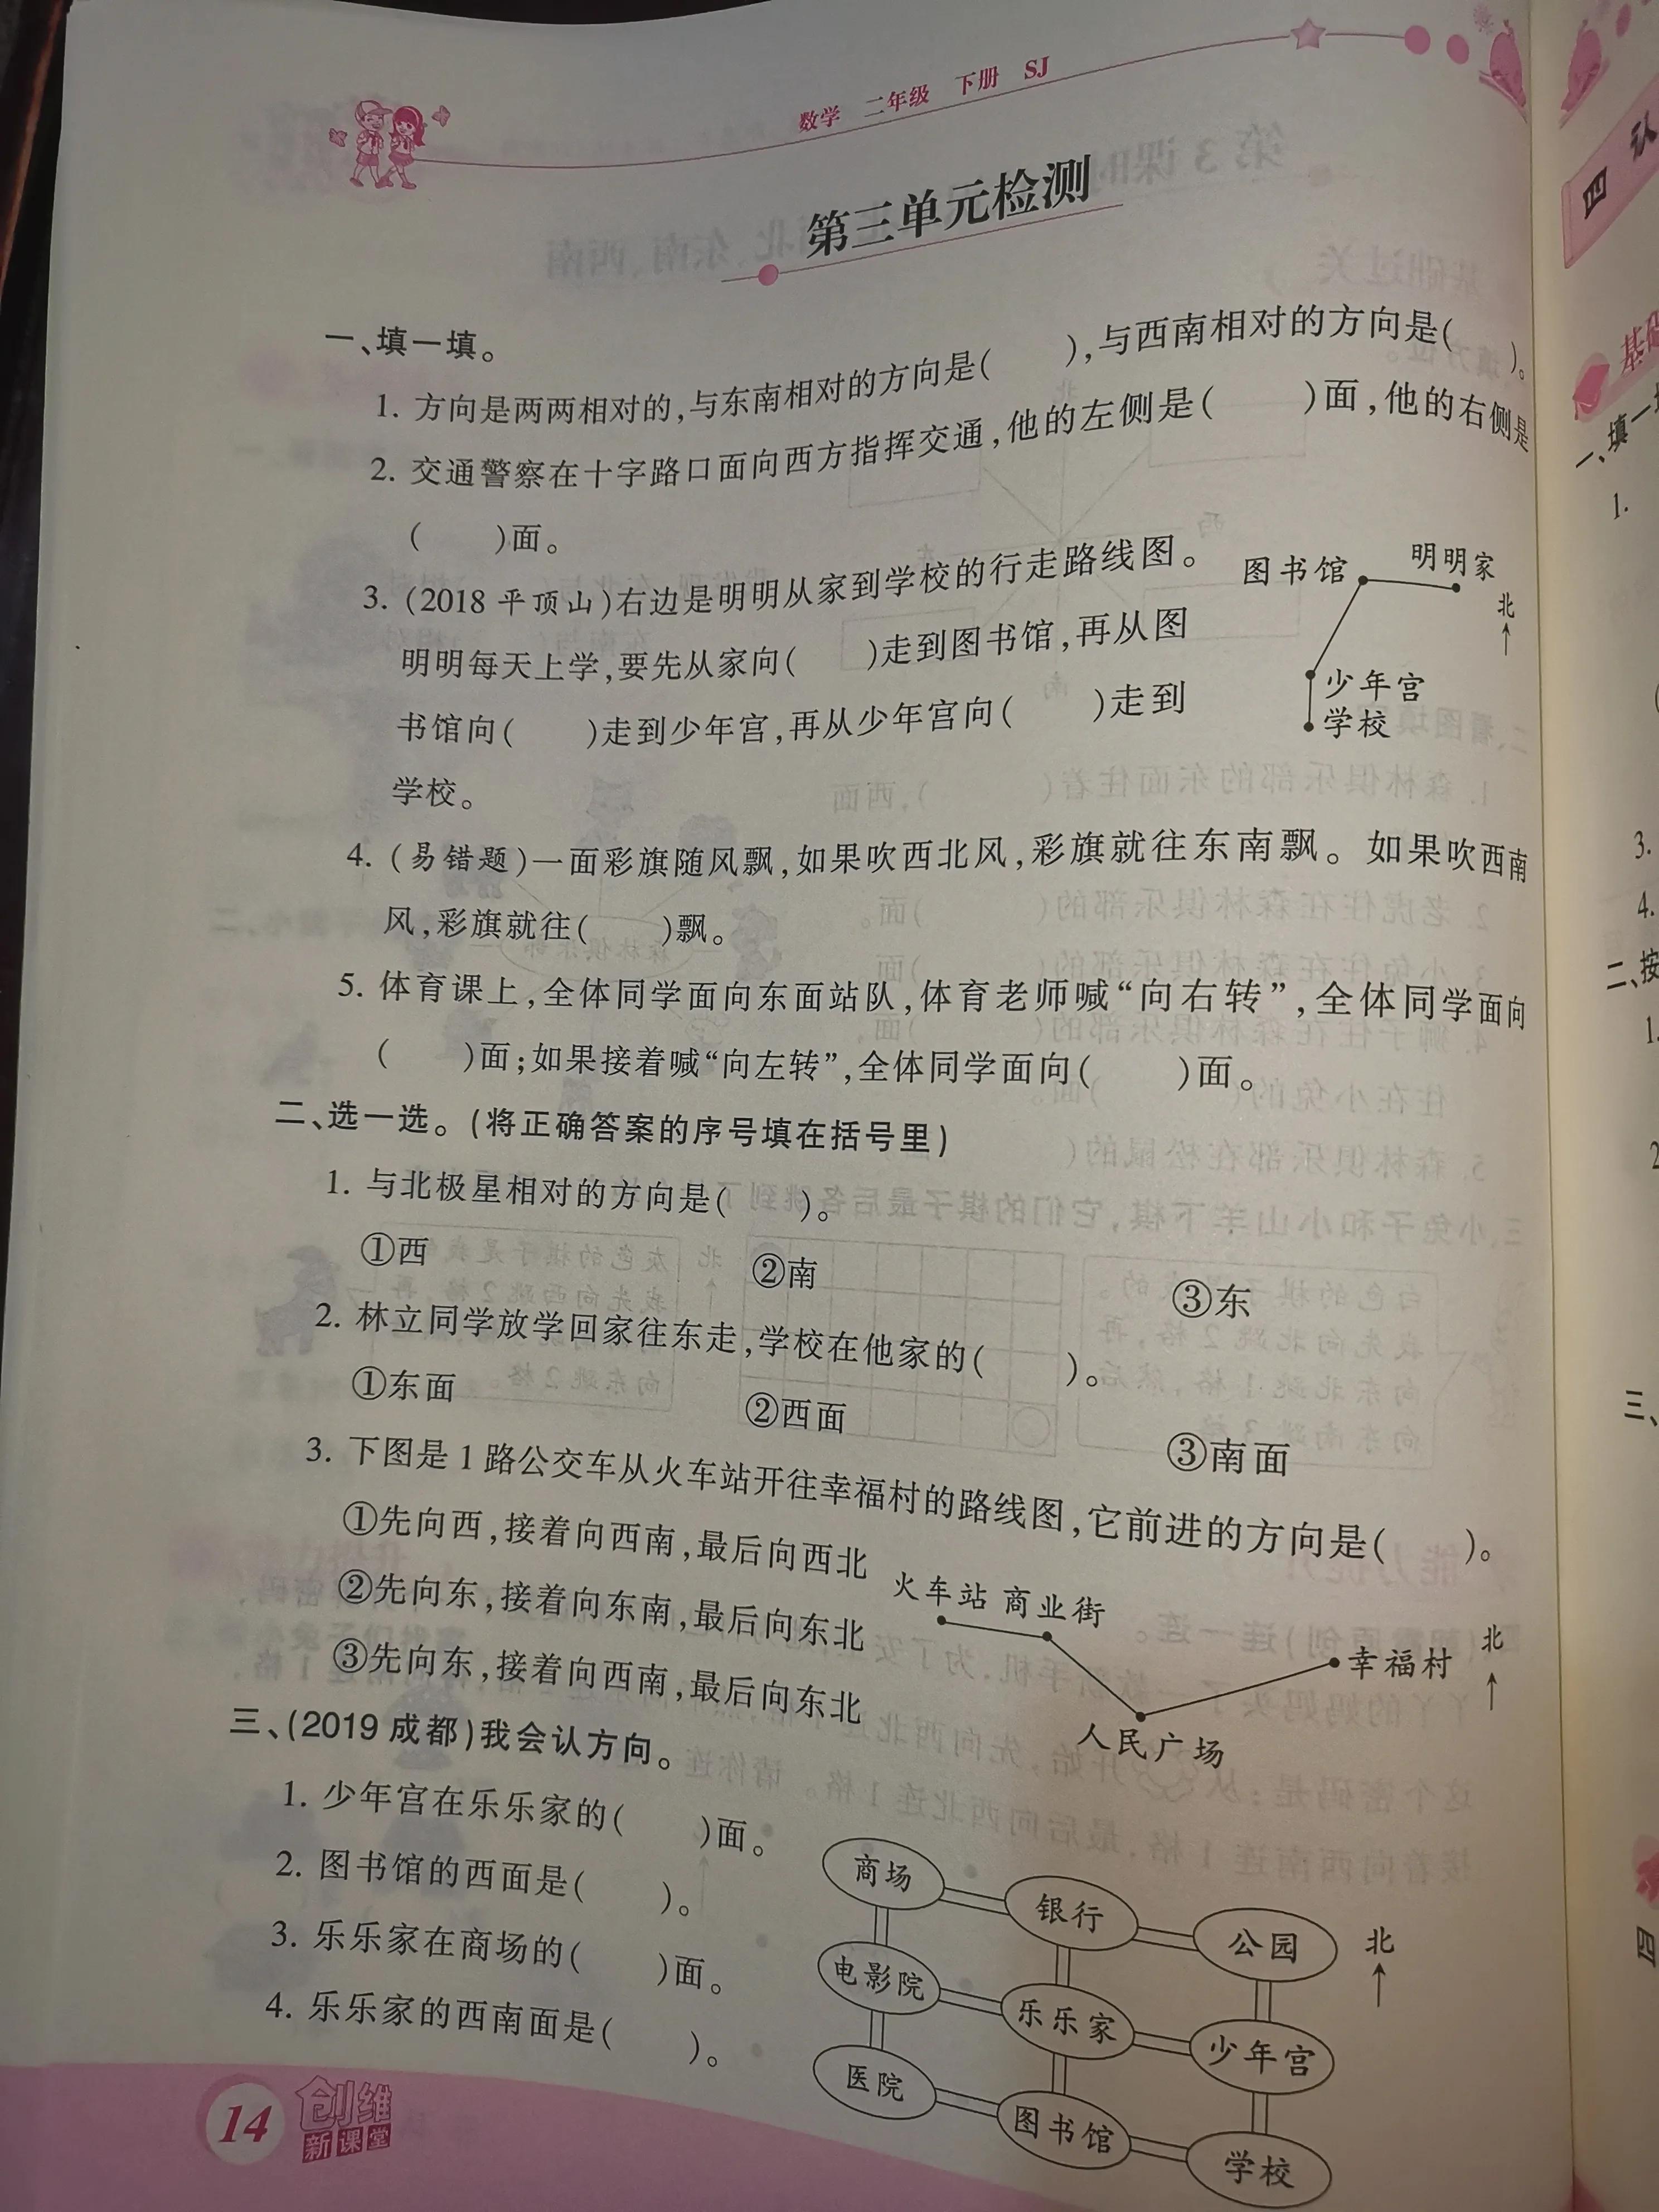 数学 二年级 下册 SJ
第三单元检测
一、填一填。
1. 方向是两两相对的,与东南相对的方向是(  ),与西南相对的方向是(  )。
2. 交通警察在十字路口面向西方指挥交通,他的左侧是(  )面,他的右侧是
(  )面。
3. (2018 平顶山)右边是明明从家到学校的行走路线图。
明明每天上学,要先从家向(  )走到图书馆,再从图
书馆向(  )走到少年宫,再从少年宫向(  )走到
学校。
图书馆 明明家
北
少年宫
学校
4. (易错题)一面彩旗随风飘,如果吹西北风,彩旗就往东南飘。如果吹西南
风,彩旗就往(  )飘。
5. 体育课上,全体同学面向东面站队,体育老师喊“向右转”,全体同学面向
(  )面;如果接着喊“向左转”,全体同学面向(  )面。
二、选一选。(将正确答案的序号填在括号里)
1. 与北极星相对的方向是(  )。
①西 ②南 ③东
2. 林立同学放学回家往东走,学校在他家的(  )。
①东面 ②西面 ③南面
3. 下图是1路公交车从火车站开往幸福村的路线图,它前进的方向是(  )。
①先向西,接着向西南,最后向西北
②先向东,接着向东南,最后向东北
③先向东,接着向西南,最后向东北
火车站 商业街
幸福村
人民广场
北
三、(2019 成都)我会认方向。
1. 少年宫在乐乐家的(  )面。
2. 图书馆的西面是(  )。
3. 乐乐家在商场的(  )面。
4. 乐乐家的西南面是(  )。
商场 银行 公园
北
电影院 乐乐家 少年宫
医院 图书馆 学校
14
创维
新课堂
四 认
基础
一、填一填
1.
3.
4.
二、按
1.
2
三、
四